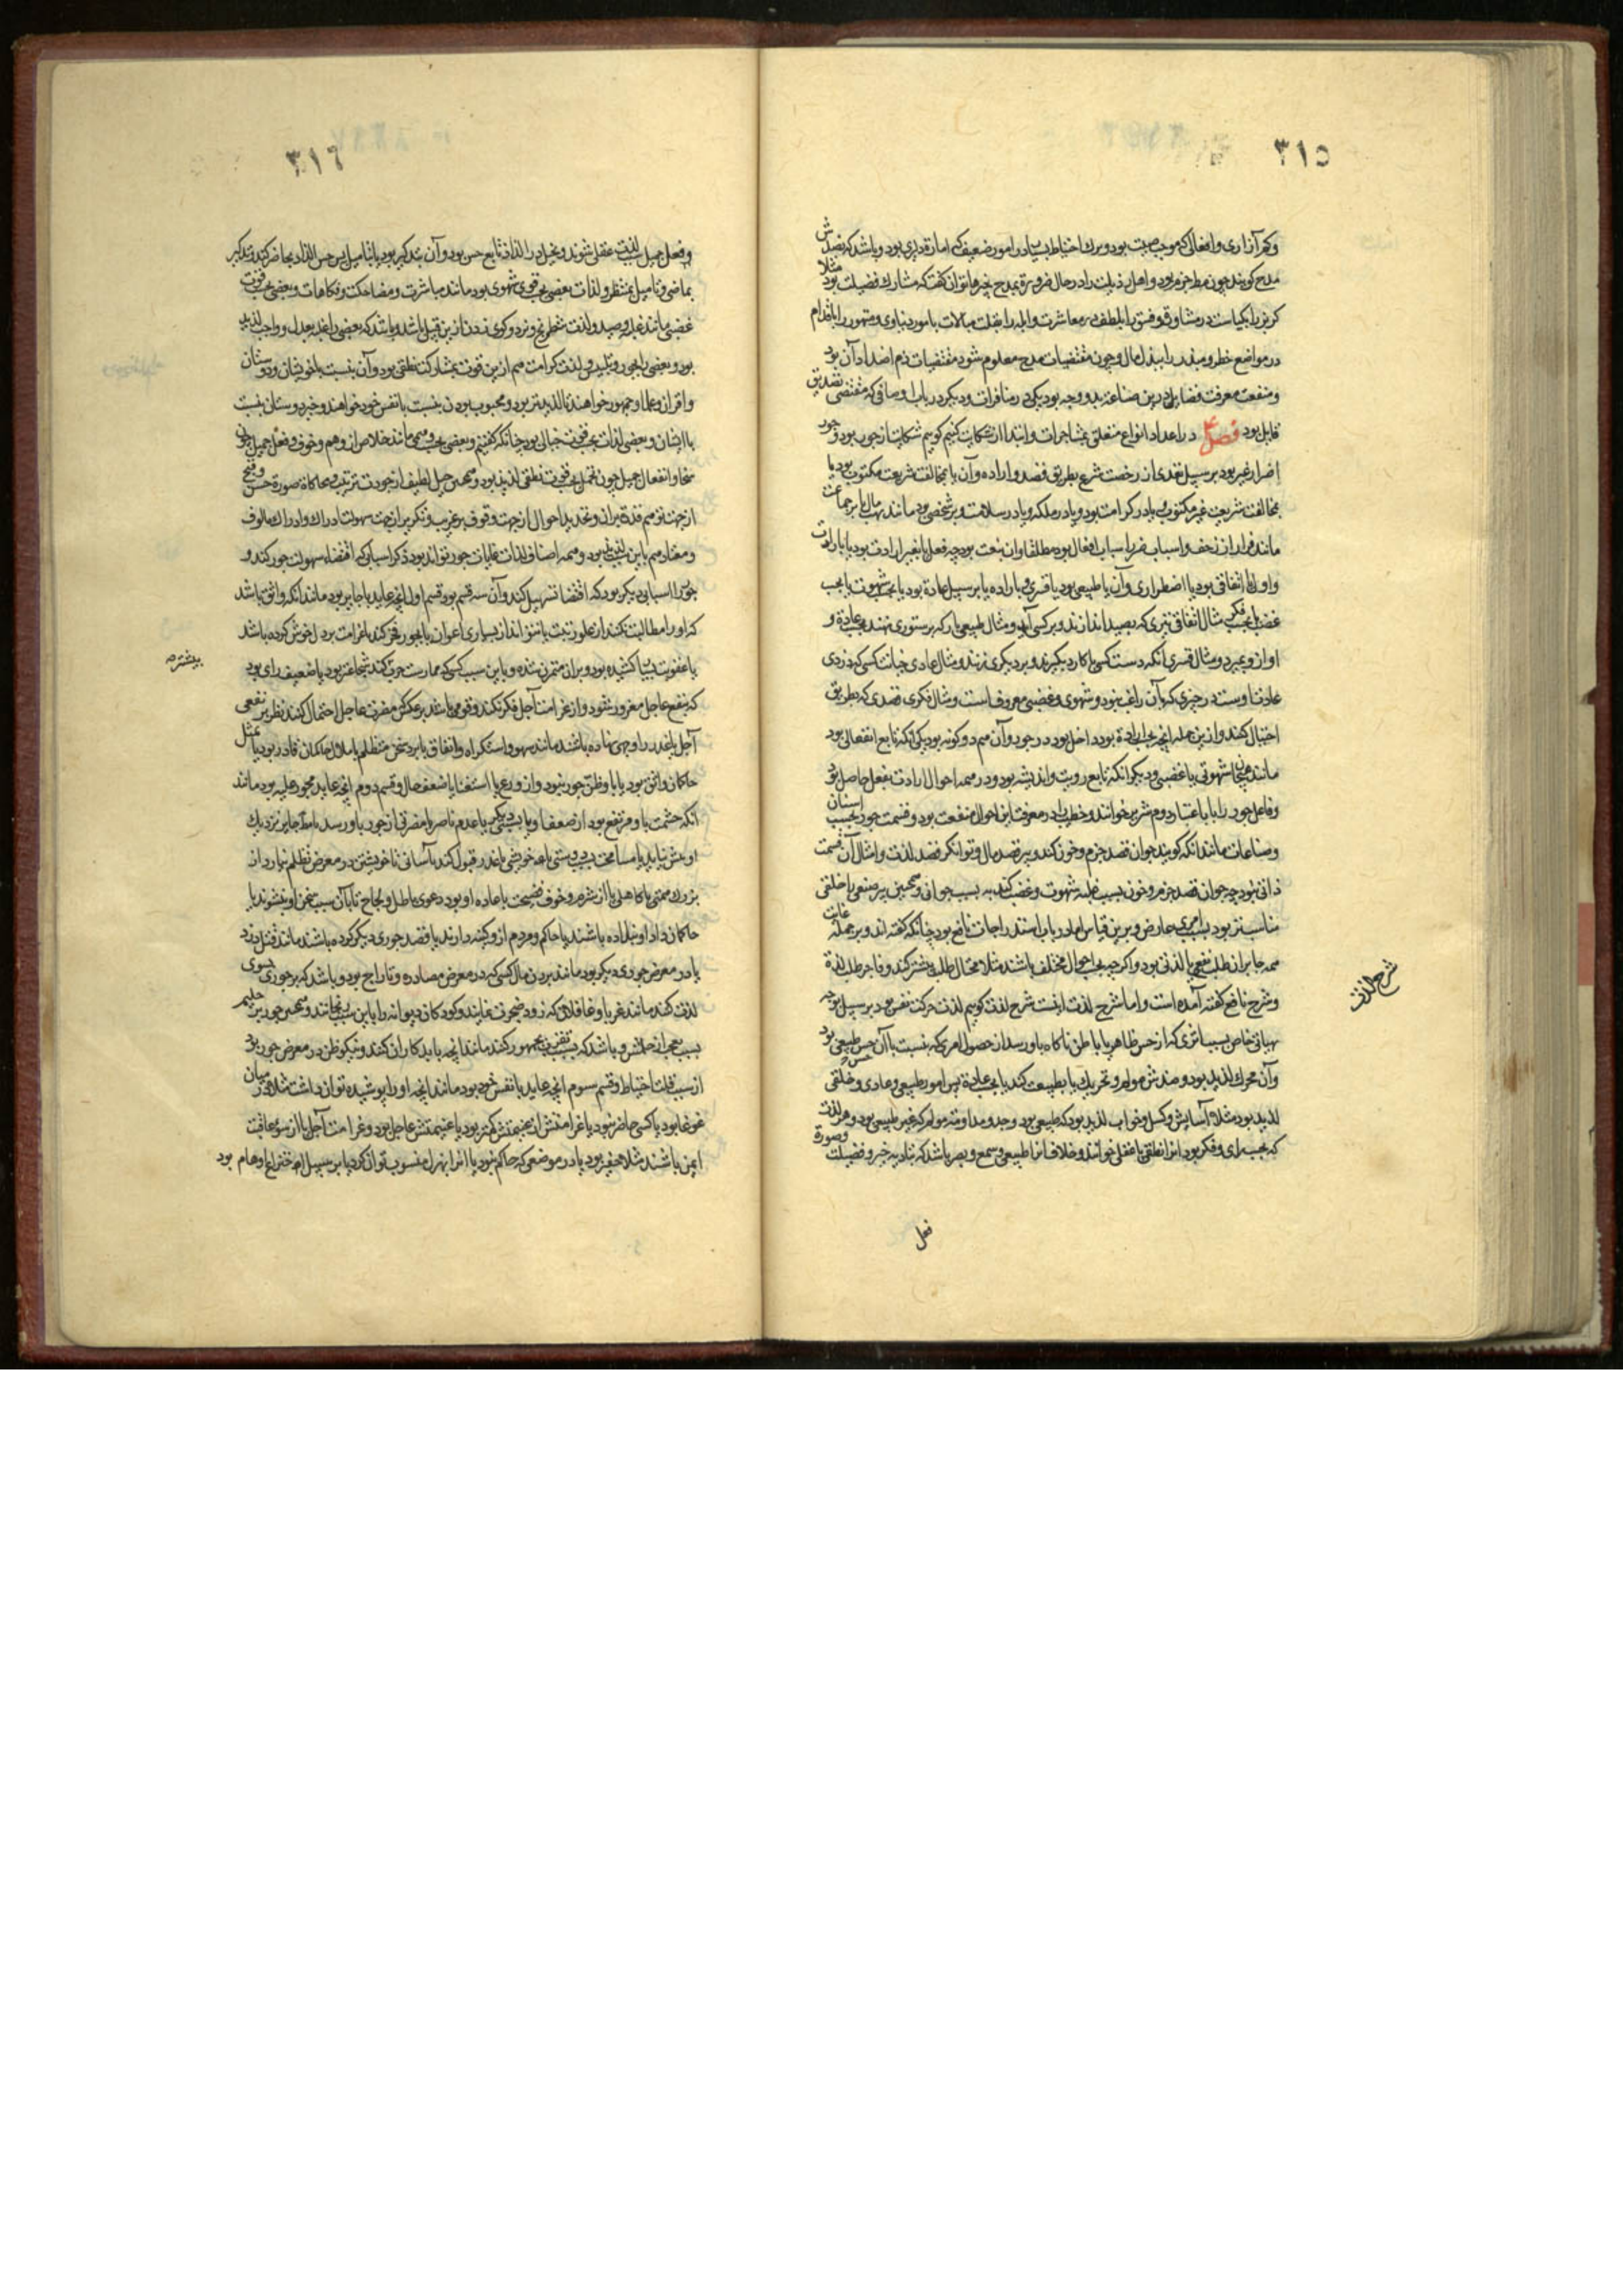 ٣١٥
و کم آزاری و افعالی که موجب محبت بود و ترک احتیاط بسیار در امور ضعیف که اما راقداری بود و باشد که بضدش
مدح گویند چون مدح و اهل رذیلت را در حال ضرورة بمدح چیزها توان گفت که مشارک فضیلت بود مثلا
کربز را بکیاست در مشاورة و فسق را بلطف در معاشرت و ابله را بقلت مبالات بامور دنیاوی و متهور را باقدام
در مواضع خطر و مبذر را ببذل مال و چون مقتضیات مدح معلوم شود مقتضیات ذم اضداد آن بود
و منفعت معرفت فضایل درین صناعة بدو وجه بود یکی در منافرات و دیگر در باب اوصافی که مقتضی تصدیق
قایل بود فصل ۴ در اعداد انواع متعلق بمشاجرات و ابتدا از شکایت کنیم گوییم شکایت از جور بود و جور
اضرار غیر بود بر سبیل تعدی از رخصت شرع بطریق قصد و اراده و آن یا بمخالفت شریعت مکتوب بود یا
بمخالفت شریعت غیر مکتوب و یا در کرامت بود و یا در ملکه و یا در سلامت و بر شخصی بود مانند نهب مال یا بر جماعت
مانند فرار از زحف و اسباب ضرر اسباب افعال بود مطلقا و آن هفت بود چه فعل یا بغیر ارادت بود یا بارادت
و اول یا اتفاقی بود یا اضطراری و آن یا طبیعی بود یا قسری و باراده یا بر سبیل عادة بود یا بحسب شهوت یا بحسب
غضب یا بحسب فکر مثال اتفاقی تیری که بصید اندازند و بر کسی آید و مثال طبیعی بار که بر ستوری نهند بحسب عادة و
او از و بمیرد و مثال قسری آنکه دست کسی با کارد بگیرند و بر دیگری زنند و مثال عادی خیانت کسی که دزدی
عادت اوست در چیزی که بآن راغب نبود و شهوی و غضبی معروف است و مثال فکری قصدی که بطریق
احتیال کنند و ازین جمله آنچه بحسب ارادة بود داخل بود در جور و آن هم دو گونه بود یکی آنکه تابع انفعالی بود
مانند هیجان شهوتی یا غضبی و دیگر آنکه تابع رویت و اندیشه بود و در همه احوال ارادت بفعل حاصل بود
و فاعل جور را باعتبار دوم شریر خوانند و خطیب را در معرفت این احوال منفعت بود و قسمت جور بحسب اسنان
و صناعات مانند آنکه گویند جوان قصد حرم و خون کند و پیر قصد مال و توانگر قصد لذت و امثال آن قسمت
ذاتی نبود چه جوان قصد حرم و خون بسبب غلبه شهوت و غضب کند نه بسبب جوانی و همچنین پیر صنفی یا خلقی
مناسب‌تر بود بسبب امری عارض و برین قیاس اما در باب استدراجات نافع بود چنانکه گفته‌اند و بر جمله غایت
همه جابران طلب نفعی یا لذتی بود و اگر چه بحسب احوال مختلف باشند مثلا محتال طلب یشتر کند و فاجر طلب لذة
و شرح نافع گفته آمده است و اما شرح لذت اینست شرح لذت گوییم لذت حرکت نفس بود بر سبیل توجه
بهیاتی خاص بسبب اثری که از حس ظاهر یا باطن ناگاه باو رسد از حصول امری که نسبت با آن حس طبیعی بود
و آن محرک لذیذ بود و ضدش مولم و تحریک یا بطبیعت کند یا بحسب عادة پس امور طبیعی و عادی و خلقی
لذیذ بود مثلا آسایش و کسل و خواب لذیذ بود که طبیعی بود و جد و مداومت مولم که غیر طبیعی بود و هر لذت
که بحسب رای و فکر بود آنرا نطقی یا عقلی خوانند و خلاف آنرا طبیعی و سمع و بصر باشد که بتادیه خبر و فضیلت و صورة
فعل
شرح لذت
٣١٦
و فعل جمیل سبب لذت عقلی شوند و تخیل در التذاذ تابع حس بود و آن بتذکیر بود یا بتامیل پس حس التذاذ بحاضر کند و تذکیر
بماضی و تامیل بمنتظر و لذات بعضی بحسب قوی شهوی بود مانند مباشرت و مضاحکت و فکاهات و بعضی بحسب قوت
غضبی مانند غلبه و صید و لذت شطرنج و نرد و گوی زدن ازین قبیل باشد و باشد که بعضی را غلبه بعدل و واجب لذیذ
بود و بعضی را بجور و تلبیس و لذت کرامت هم ازین قوت بمشارکت نطقی بود و آن بنسبت با خویشان و دوستان
و اقران و علما و جمهور خواهند تا لذیذتر بود و محبوب بودن بنسبت با نفس خود خواهند و خیر دوستان بنسبت
با ایشان و بعضی لذات بحسب قوت خیالی بود چنانکه گفتیم و بعضی بحسب وهمی مانند خلاص از وهم و خوف و فعل جمیل چون
سخا و انفعال جمیل چون تحمل بحسب قوت نطقی لذیذ بود و همچنین حیل لطیف از جودت ترتیب و محاکاة صورة حسن و قبیح
از جهت توهم قدة بر آن و تجدید احوال از جهت وقوف بر غریب و تکریر از جهت سهولت ادراک و ادراک مالوف
و معتاد هم باین سبب لذیذ بود و همه اصناف لذات غایات جور تواند بود ذکر اسبابی که اقتضاء سهولت جور کند و
جور را اسبابی دیگر بود که اقتضا تسهیل کند و آن سه قسم بود قسم اول آنچه عاید با جابر بود مانند آنکه واثق باشد
که او را مطالبت نکنند از علو رتبت یا نتوانند از بسیاری اعوان یا بجور فخر کند یا غرامت بر دل خوش کرده باشد
یا عقوبت بسیار کشیده بود و بر آن متمرن شده و باین سبب کسی که ممارست حرب کند شجاعتر بود یا ضعیف رای بود
که بنفع عاجل مغرور شود و از غرامت آجل فکر نکند و قومی باشند بر عکس مضرت عاجل احتمال کنند نظر بر نفعی
آجل یا غدر را وجهی نهاده باشند مانند سهو و استکراه و اتفاق یا برد سخن متظلم یا ملال حاکمان قادر بود یا بمیل
حاکمان واثق بود یا با او ظن جور نبود و از ورع یا استغنا یا ضعف حال و قسم دوم آنچه عاید مجور علیه بود مانند
آنکه حشمت باو مرتفع بود از ضعف او یا بسبب دیگری یا عدم ناصر یا مضرتی از جور باو رسد یا مظ جابر نزدیک
او بش نیاید یا مسامحت بسبب دوستی یا هم خویشی یا غدر قبول کند بآسانی تا خویشتن در معرض تظلم نیارد از
بزرگ همتی یا کاهلی یا از شرم و خوف فضیحت یا عاده او بود دعوی باطل و لجاج تا بآن سبب سخن او نشنوند یا
حاکمان داد او نداده باشند یا حاکم و مردم ازو کینه دارند یا قصد جوری دیگر کرده باشند مانند قتل دزد
یا در معرض جوری دیگر بود مانند بردن مال کسی که در معرض مصادره و تاراج بود و باشد که بر جوری بسوی
لذت کنند مانند غربا و غافلان که زود ضجرت نمایند و کودکان دیوانه را باین سبب رنجانند و همچنین جور بر حلیم
بسبب تعجب از حلمش و باشد که بسبب تقرب بجمهور کنند مانند آنچه با بدکاران کنند و نیکو ظن در معرض جور بود
از سبب قلت احتیاط و قسم سوم آنچه عاید با نفس خود بود مانند آنچه او را پوشیده توان داشت مثلا در میان
غوغا بود یا کسی حاضر نبود یا غرامتش از غنیمتش کمتر بود یا غنیمتش عاجل بود و غرامت آجل یا از سوء عاقبت
ایمن باشند مثلا حقیر بود یا در موضعی که حاکم نبود یا آنرا بهزل منسوب توان کرد یا بر سبیل اختراع اوهام بود
بیشتر